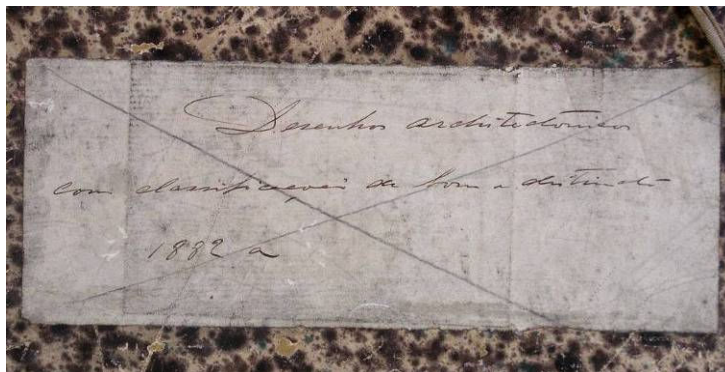 Desenhos architectónicos
com classificações de bom a distincto
1882 a